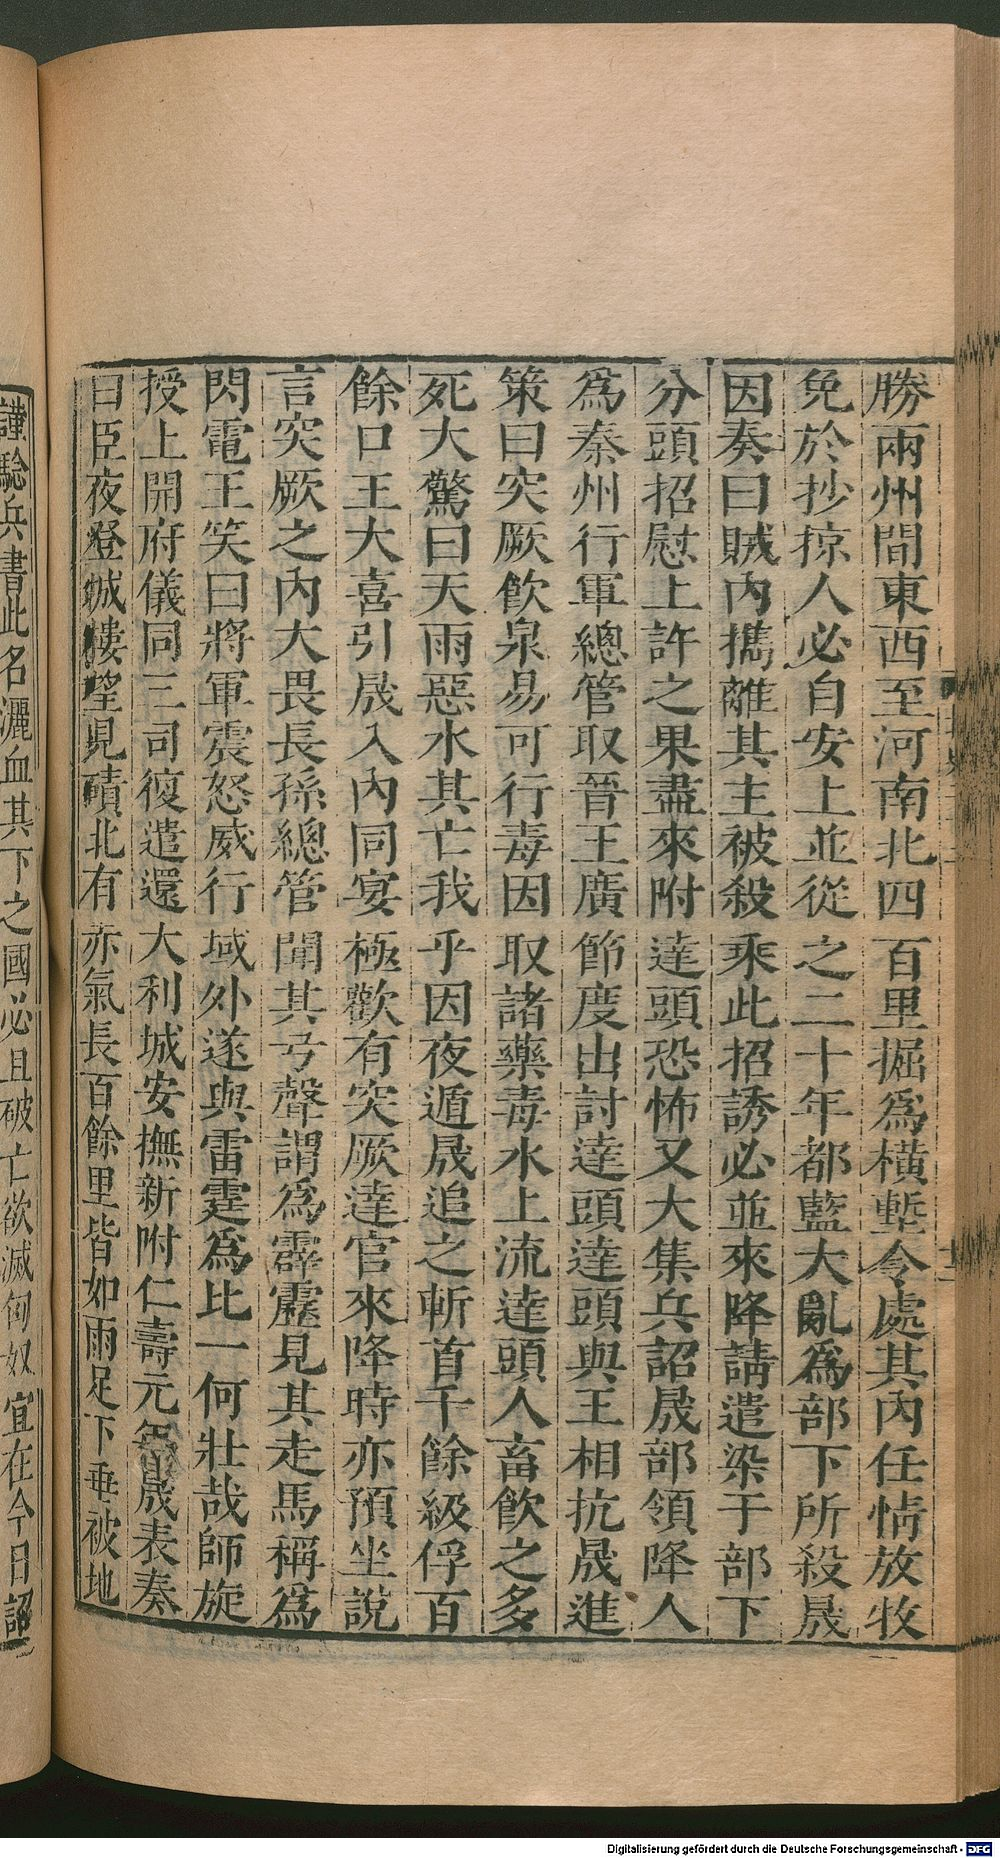 勝兩州間東西至河南北四百里掘爲橫塹令處其內任情放牧
免於抄掠人必自安上並從之二十年都藍大亂爲部下所殺晟
因奏曰賊內擕離其主被殺乘此招誘必並來降請遣染于部下
分頭招慰上許之果盡來附達頭恐怖又大集兵詔晟部領降人
爲秦州行軍總管取晉王廣節度出討達頭達頭與王相抗晟進
策曰突厥飲泉易可行毒因取諸藥毒水上流達頭人畜飲之多
死大驚曰天雨惡水其亡我乎因夜遁晟追之斬首千餘級俘百
餘口王大喜引晟入內同宴極歡有突厥達官來降時亦預坐說
言突厥之內大畏長孫總管聞其弓聲謂爲霹靂見其走馬稱爲
閃電王笑曰將軍震怒威行域外遂與雷霆爲比一何壯哉師旋
授上開府儀同三司復遣還大利城安撫新附仁壽元年晟表奏
曰臣夜登城樓望見磧北有赤氣長百餘里皆如雨足下垂被地
謹驗兵書此名灑血其下之國必且破亡欲滅匈奴宜在今日詔
Digitalisierung gefördert durch die Deutsche Forschungsgemeinschaft - DFG